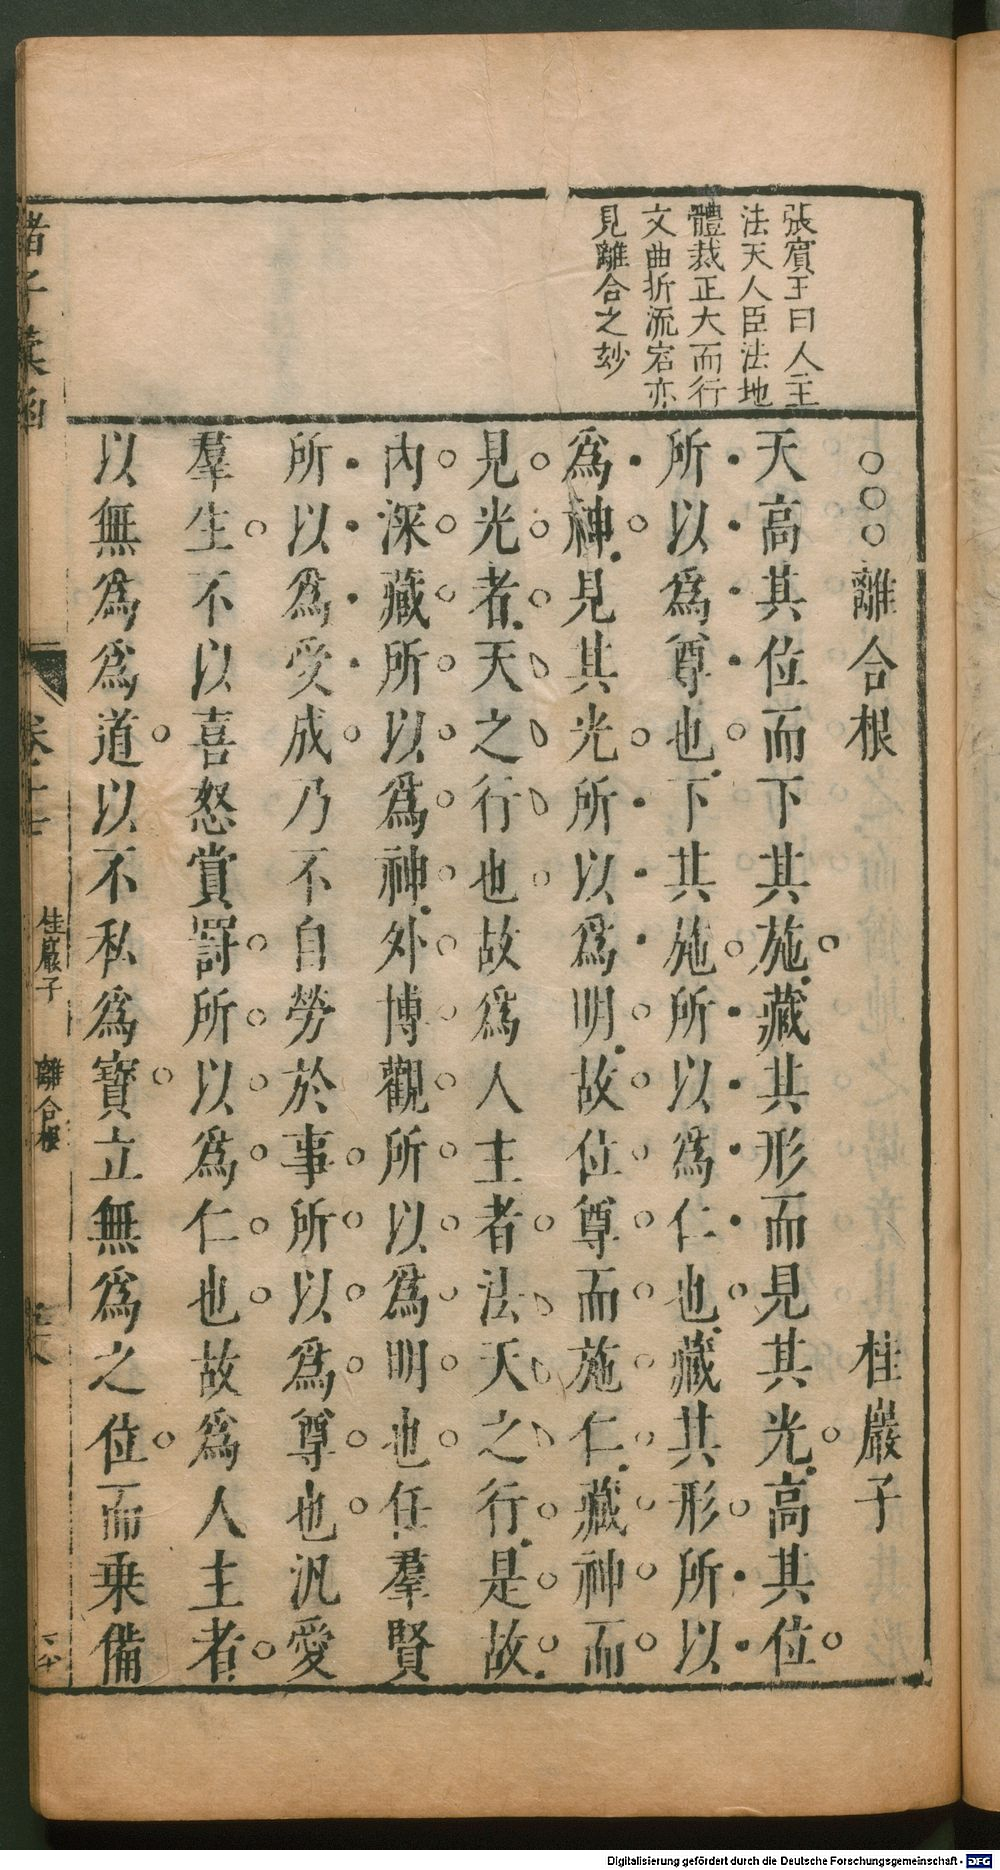 張賓王曰人主
法天人臣法地
體裁正大而行
文曲折流宕亦
見離合之妙
○○○離合根 桂巖子
天高其位而下其施藏其形而見其光高其位
所以為尊也下其施所以為仁也藏其形所以
為神見其光所以為明故位尊而施仁藏神而
見光者天之行也故為人主者法天之行是故
內深藏所以為神外博觀所以為明也任羣賢
所以為受成乃不自勞於事所以為尊也汎愛
羣生不以喜怒賞罰所以為仁也故為人主者
以無為為道以不私為寶立無為之位而乗備
諸子彙函
卷十七 桂巖子 離合根
Digitalisierung gefördert durch die Deutsche Forschungsgemeinschaft - DFG